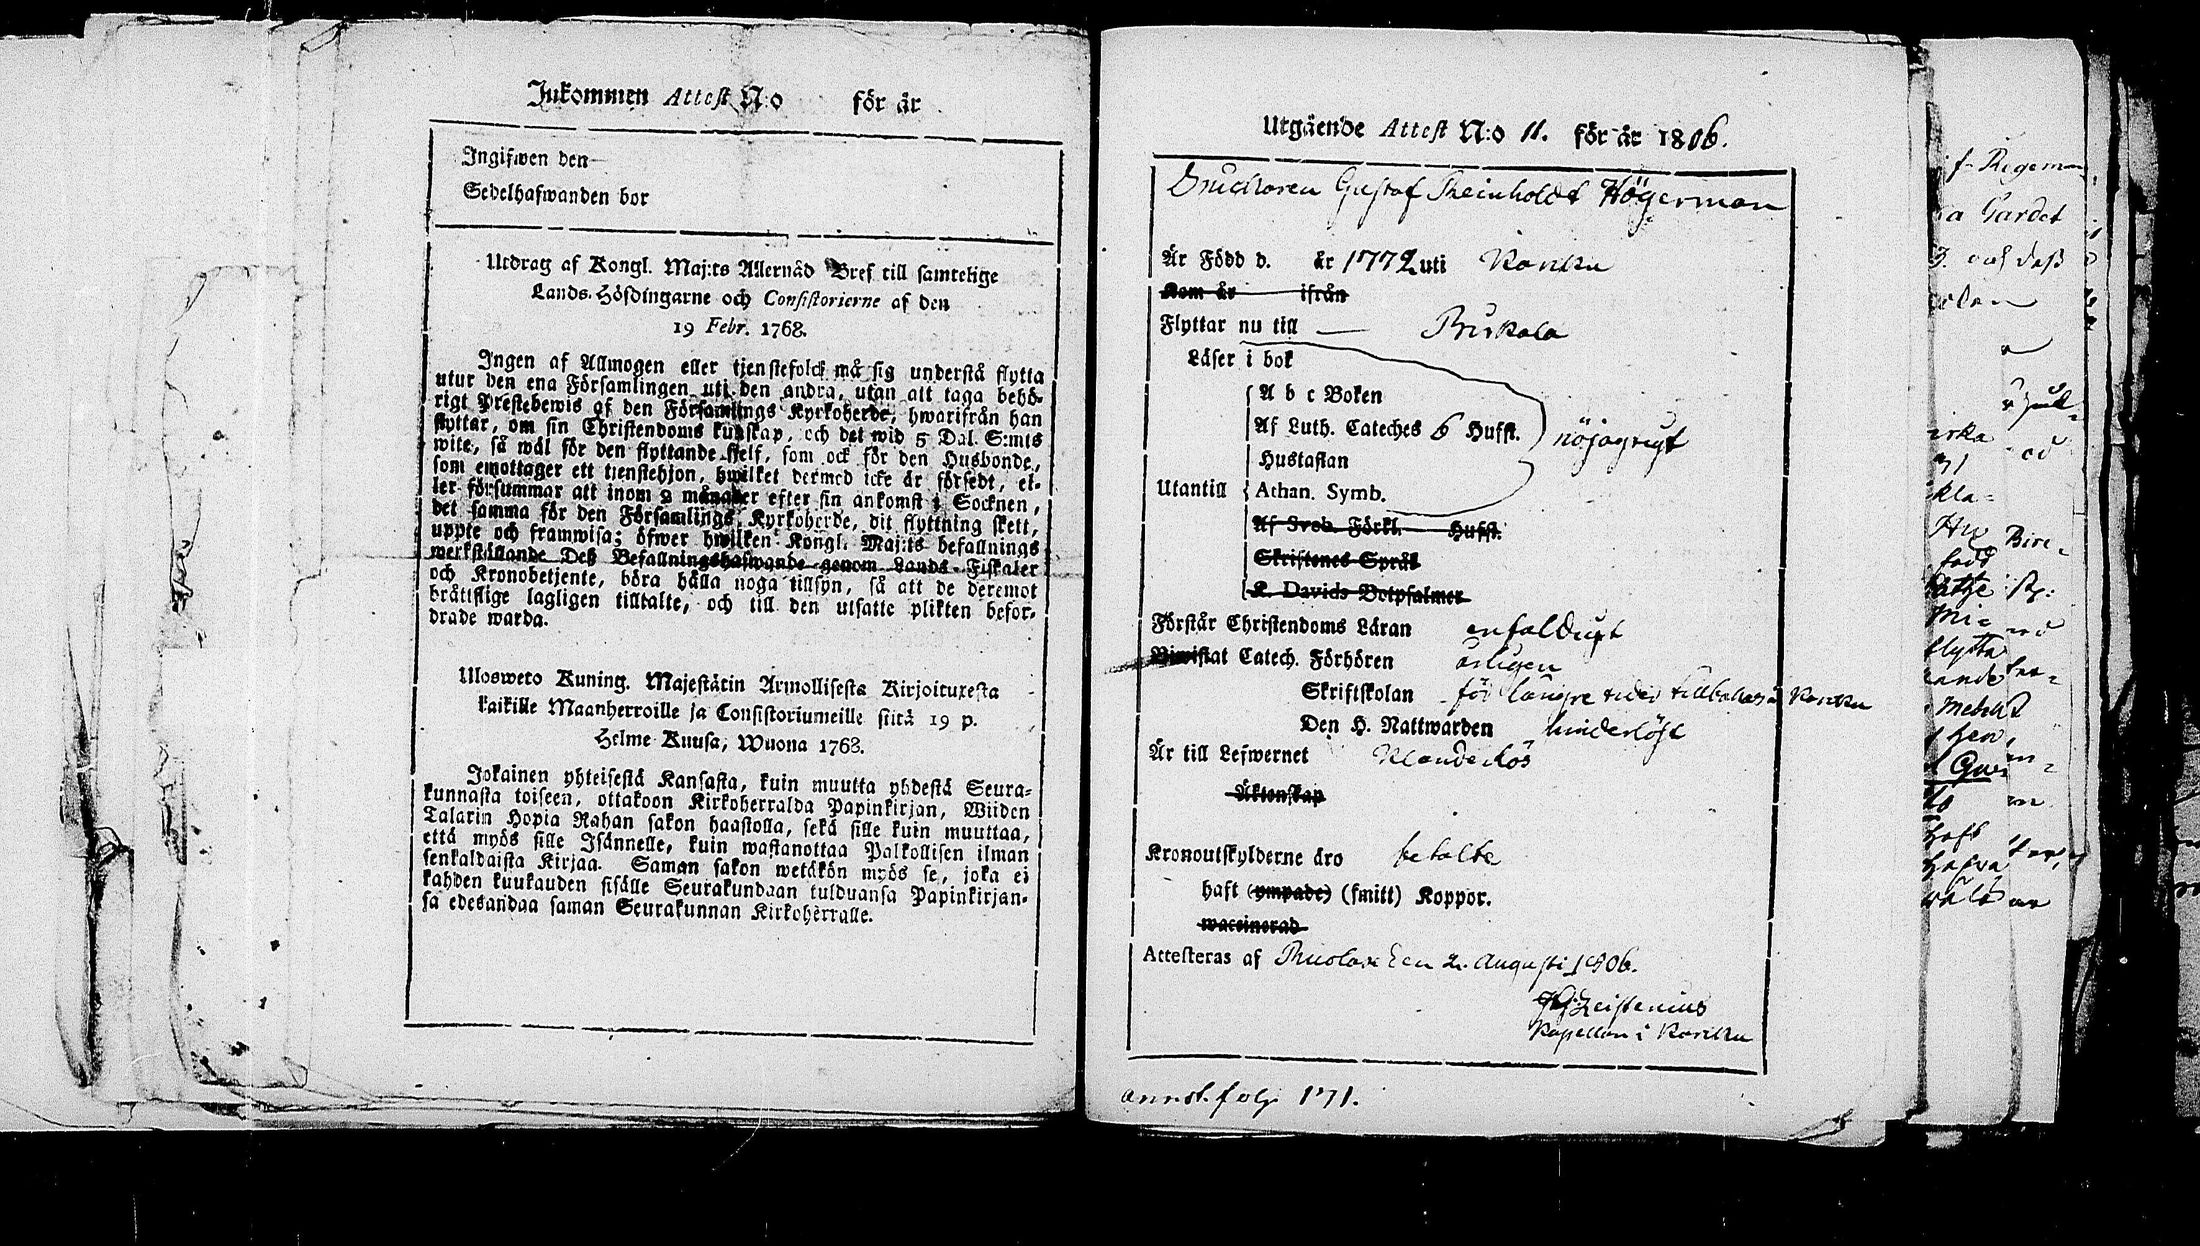 Inkommen Attest N:o för år
Ingifwen den
Sedelhafwanden bor
Utdrag af Kongl. Maj:ts Allernåd Bref till samtelige
Lands-Höfdingarne och Consistorierne af den
19 Febr. 1768.
Ingen af Allmogen eller tjenstefolck må sig understå flytta
utur den ena Församlingen uti den andra, utan att taga behö-
rigt Prestebewis af den Församlings Kyrkoherde, hwarifrån han
flyttar, om sin Christendoms kunskap, och det wid 5 Dal. S:mts
wite, så wäl för den flyttande sielf, som ock för den Husbonde,
som emottager ett tienstehjon, hwilket dermed icke är försedt, el-
ler försummar att inom 2 månader efter sin ankomst i Socknen,
det samma för den Församlings Kyrkoherde, dit flyttning skett,
uppte och framwisa; öfwer hwilken Kongl. Maj:ts befallnings
werkställande Deß Befallningshafwande genom Lands-Fiskaler
och Kronobetjente, böra hålla noga tillsyn, så att de deremot
bråttslige lagligen tilltalte, och till den utsatte plikten befor-
drade warda.
Ulosweto Kuning. Majestätin Armollisesta Kirjoituxesta
kaikille Maanherroille ja Consistoriumeille siitä 19 p.
Helme Kuusa, Wuona 1768.
Jokainen yhteisestä Kansasta, kuin muutta yhdestä Seura-
kunnasta toiseen, ottakoon Kirkoherralda Papinkirjan, Wiiden
Talarin Hopia Rahan sakon haastolla, sekä sille kuin muuttaa,
että myös sille Isännelle, kuin wastanottaa Palkollisen ilman
senkaldaista Kirjaa. Saman sakon wetäkön myös se, joka ei
kahden kuukauden sisälle Seurakundaan tulduansa Papinkirjan-
sa edesandaa saman Seurakunnan Kirkoherralle.
Utgående Attest N:o 11. för år 1806.
Gustaf Reinholdt Högerman
Är Född d. år 1772 uti Koriku
Kom år ifrån
Flyttar nu till Pirkala
Läser i bok
A b c Boken
Af Luth. Cateches 6 Hufst. nöjagtigt
Hustaflan
Utantill Athan. Symb.
Af Sveb. Förkl. Hufst.
Skriftenes Språk
K. Davids Botpsalmer
Förstår Christendoms Läran enfaldigt
Biwistat Catech. Förhören årligen
Skriftskolan för längre tider tillbaka i Koriku
Den H. Nattwarden hinderlöst
Är till Lefwernet Klanderlös
Äktenskap
Kronoutskylderne äro betalte
haft (ympade) (smitt) Koppor.
waccinerad
Attesteras af den 2. Augusti 1806.
Zeistenius
Kapellan i Koriku
annot. folg 171.